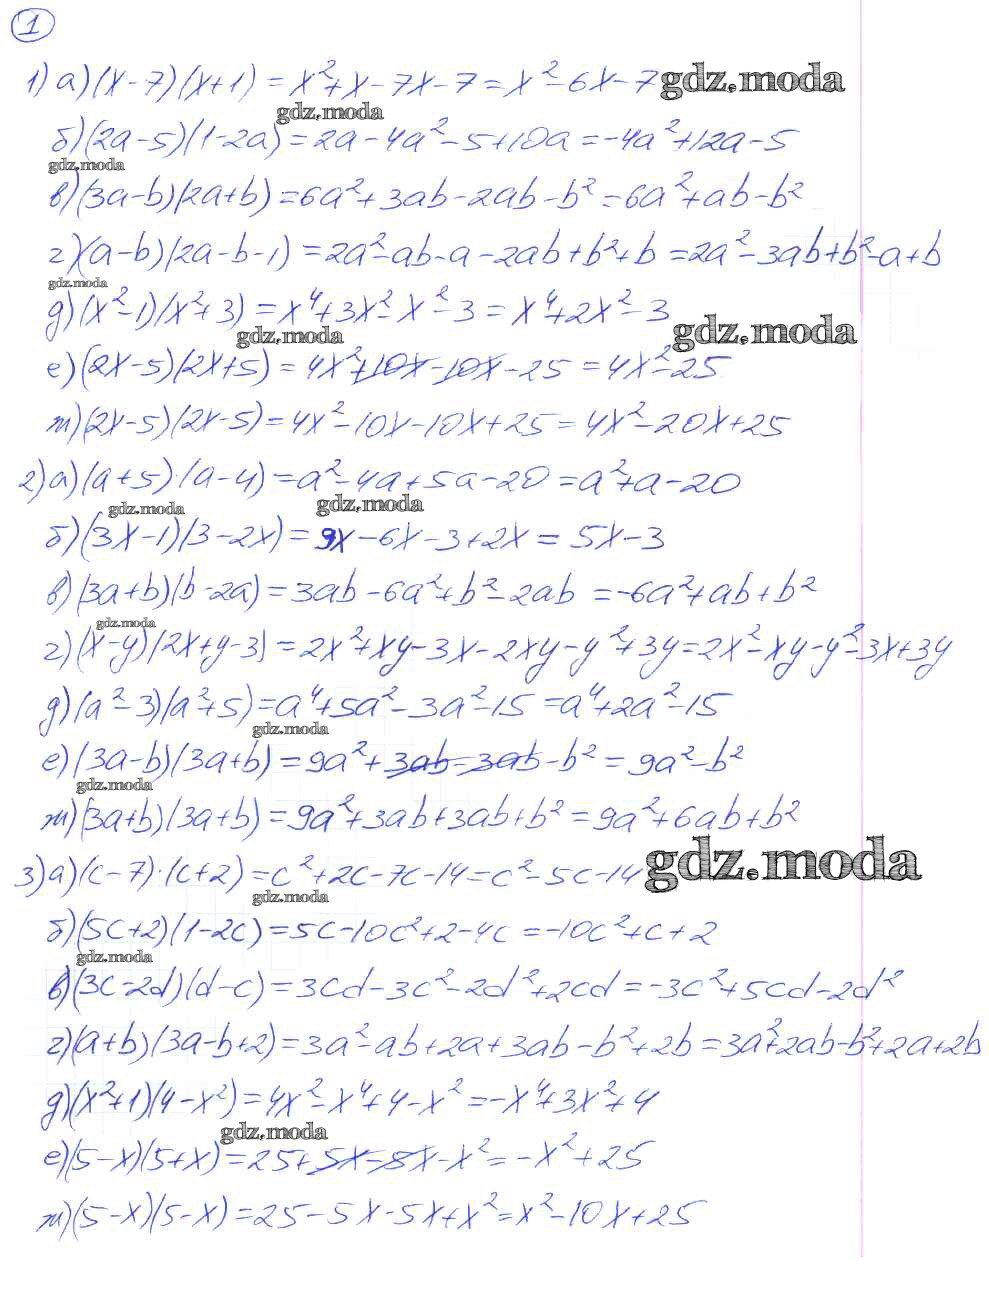 1
1) а) (x-7)(x+1) = x²+x-7x-7 = x²-6x-7 gdz.moda
gdz.moda
б) (2a-5)(1-2a) = 2a-4a²-5+10a = -4a²+12a-5
gdz.moda
в) (3a-b)(2a+b) = 6a²+3ab-2ab-b² = 6a²+ab-b²
г) (a-b)(2a-b-1) = 2a²-ab-a-2ab+b²+b = 2a²-3ab+b²-a+b
gdz.moda
д) (x²-1)(x²+3) = x⁴+3x²-x²-3 = x⁴+2x²-3
gdz.moda gdz.moda
е) (2x-5)(2x+5) = 4x²+10x-10x-25 = 4x²-25
ж) (2x-5)(2x-5) = 4x²-10x-10x+25 = 4x²-20x+25
2) а) (a+5)·(a-4) = a²-4a+5a-20 = a²+a-20
gdz.moda gdz.moda
б) (3x-1)(3-2x) = 9x-6x-3+2x = 5x-3
в) (3a+b)(b-2a) = 3ab-6a²+b²-2ab = -6a²+ab+b²
gdz.moda
г) (x-y)(2x+y-3) = 2x²+xy-3x-2xy-y²+3y = 2x²-xy-y²-3x+3y
д) (a²-3)(a²+5) = a⁴+5a²-3a²-15 = a⁴+2a²-15
gdz.moda
е) (3a-b)(3a+b) = 9a²+3ab-3ab-b² = 9a²-b²
gdz.moda
ж) (3a+b)(3a+b) = 9a²+3ab+3ab+b² = 9a²+6ab+b²
3) а) (c-7)·(c+2) = c²+2c-7c-14 = c²-5c-14 gdz.moda
gdz.moda
б) (5c+2)(1-2c) = 5c-10c²+2-4c = -10c²+c+2
gdz.moda
в) (3c-2d)(d-c) = 3cd-3c²-2d²+2cd = -3c²+5cd-2d²
г) (a+b)(3a-b+2) = 3a²-ab+2a+3ab-b²+2b = 3a²+2ab-b²+2a+2b
д) (x²+1)(4-x²) = 4x²-x⁴+4-x² = -x⁴+3x²+4
gdz.moda
е) (5-x)(5+x) = 25+5x-5x-x² = -x²+25
ж) (5-x)(5-x) = 25-5x-5x+x² = x²-10x+25